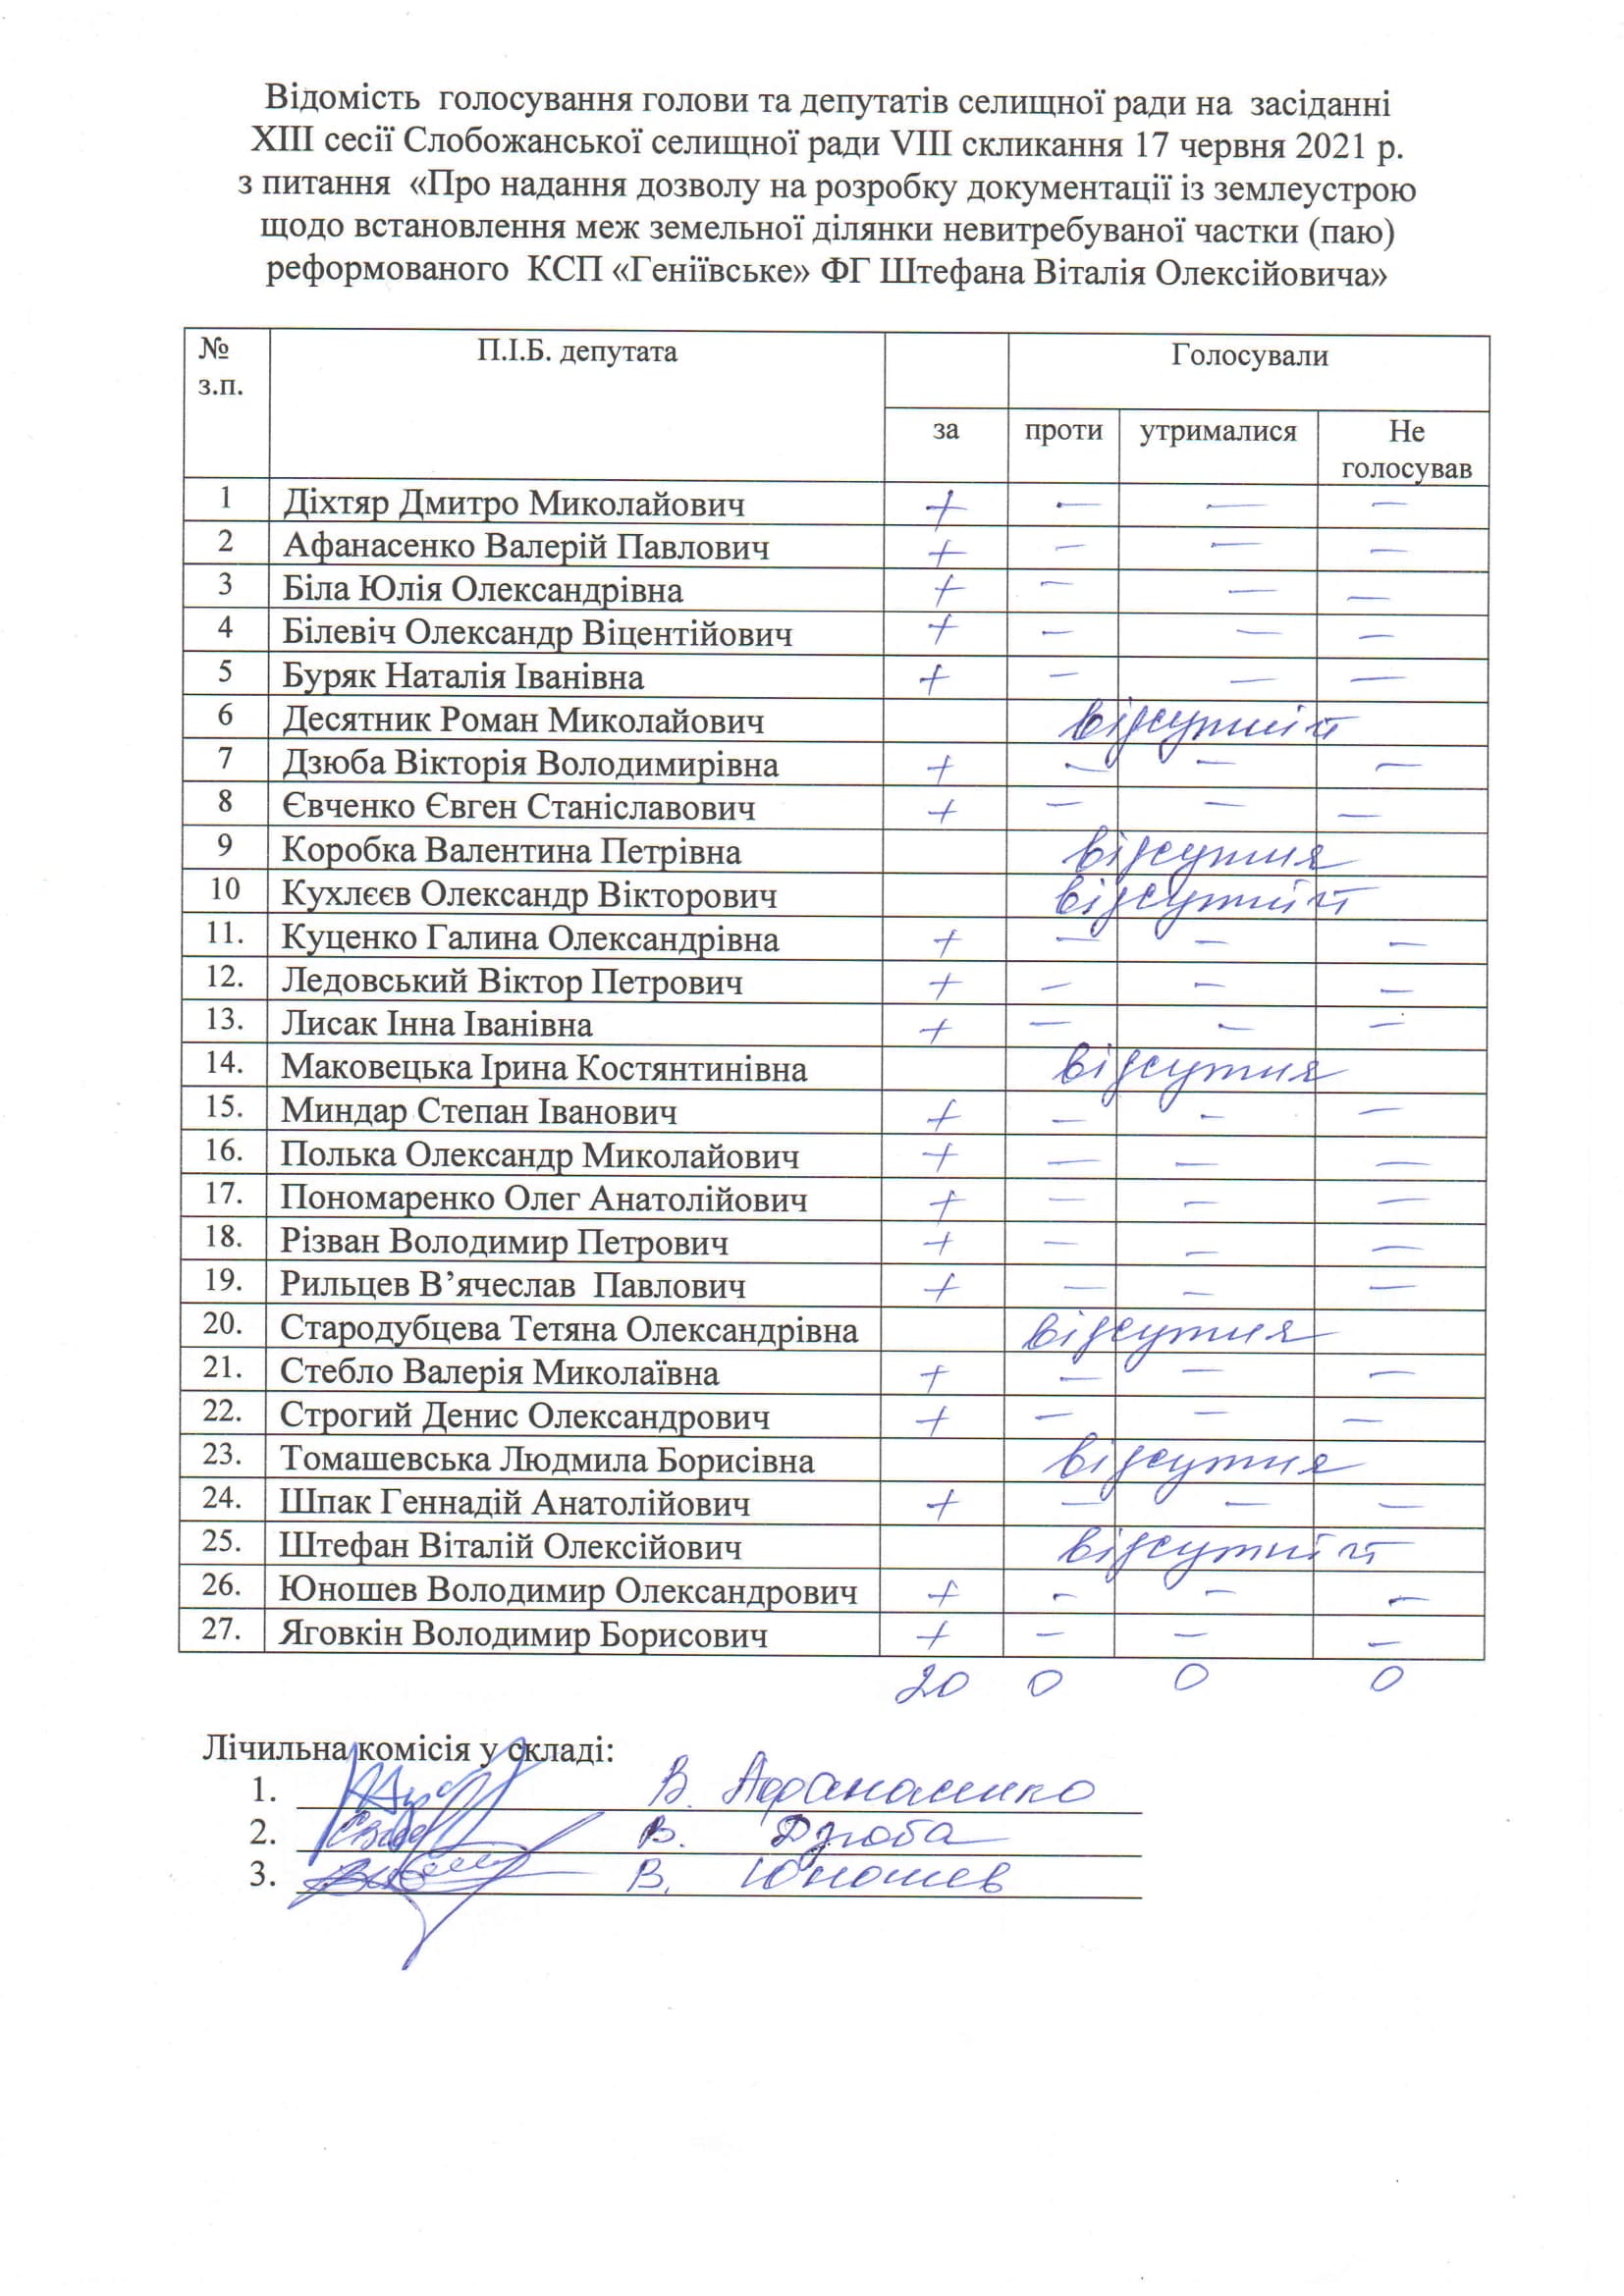 Відомість голосування голови та депутатів селищної ради на засіданні
XIII сесії Слобожанської селищної ради VIII скликання 17 червня 2021 р.
з питання «Про надання дозволу на розробку документації із землеустрою
щодо встановлення меж земельної ділянки невитребуваної частки (паю)
реформованого КСП «Геніївське» ФГ Штефана Віталія Олексійовича»
№ з.п. П.І.Б. депутата Голосували
за проти утрималися Не голосував
1 Діхтяр Дмитро Миколайович + — — —
2 Афанасенко Валерій Павлович + — — —
3 Біла Юлія Олександрівна + — — —
4 Білевіч Олександр Віцентійович + — — —
5 Буряк Наталія Іванівна + — — —
6 Десятник Роман Миколайович відсутній
7 Дзюба Вікторія Володимирівна + — — —
8 Євченко Євген Станіславович + — — —
9 Коробка Валентина Петрівна відсутня
10 Кухлєєв Олександр Вікторович відсутній
11. Куценко Галина Олександрівна + — — —
12. Ледовський Віктор Петрович + — — —
13. Лисак Інна Іванівна + — — —
14. Маковецька Ірина Костянтинівна відсутня
15. Миндар Степан Іванович + — — —
16. Полька Олександр Миколайович + — — —
17. Пономаренко Олег Анатолійович + — — —
18. Різван Володимир Петрович + — — —
19. Рильцев В’ячеслав Павлович + — — —
20. Стародубцева Тетяна Олександрівна відсутня
21. Стебло Валерія Миколаївна + — — —
22. Строгий Денис Олександрович + — — —
23. Томашевська Людмила Борисівна відсутня
24. Шпак Геннадій Анатолійович + — — —
25. Штефан Віталій Олексійович відсутній
26. Юношев Володимир Олександрович + — — —
27. Яговкін Володимир Борисович + — — —
20 0 0 0
Лічильна комісія у складі:
1. В. Афанасенко
2. В. Дзюба
3. В. Юношев